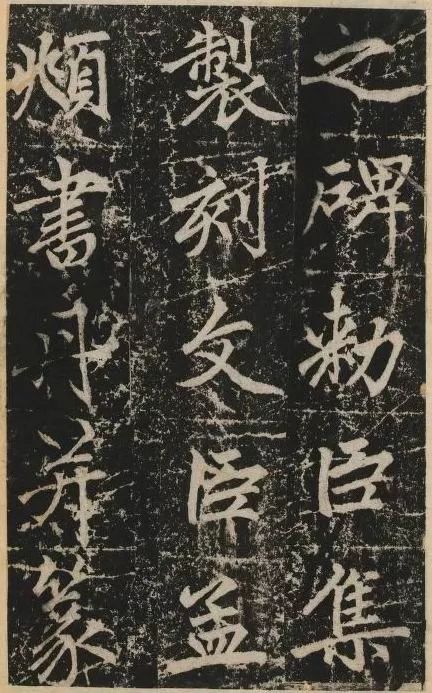 之碑勑臣集
製刻文臣孟
頫書丹并篆